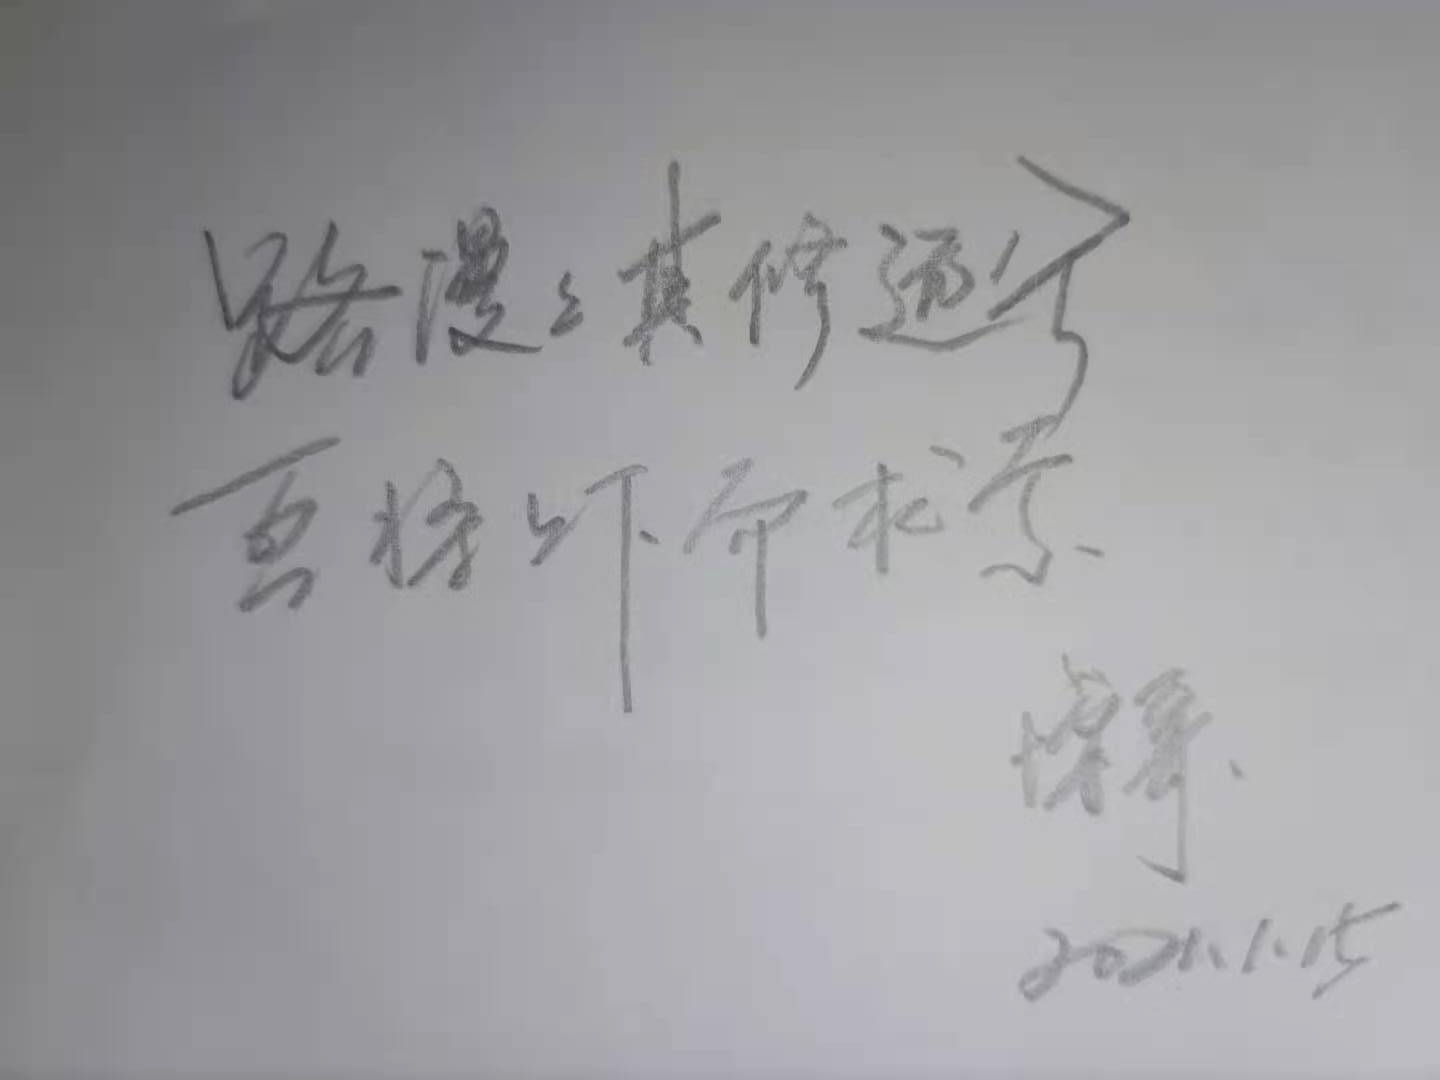 路漫々其修远兮
吾将上下而求索
2021.1.15